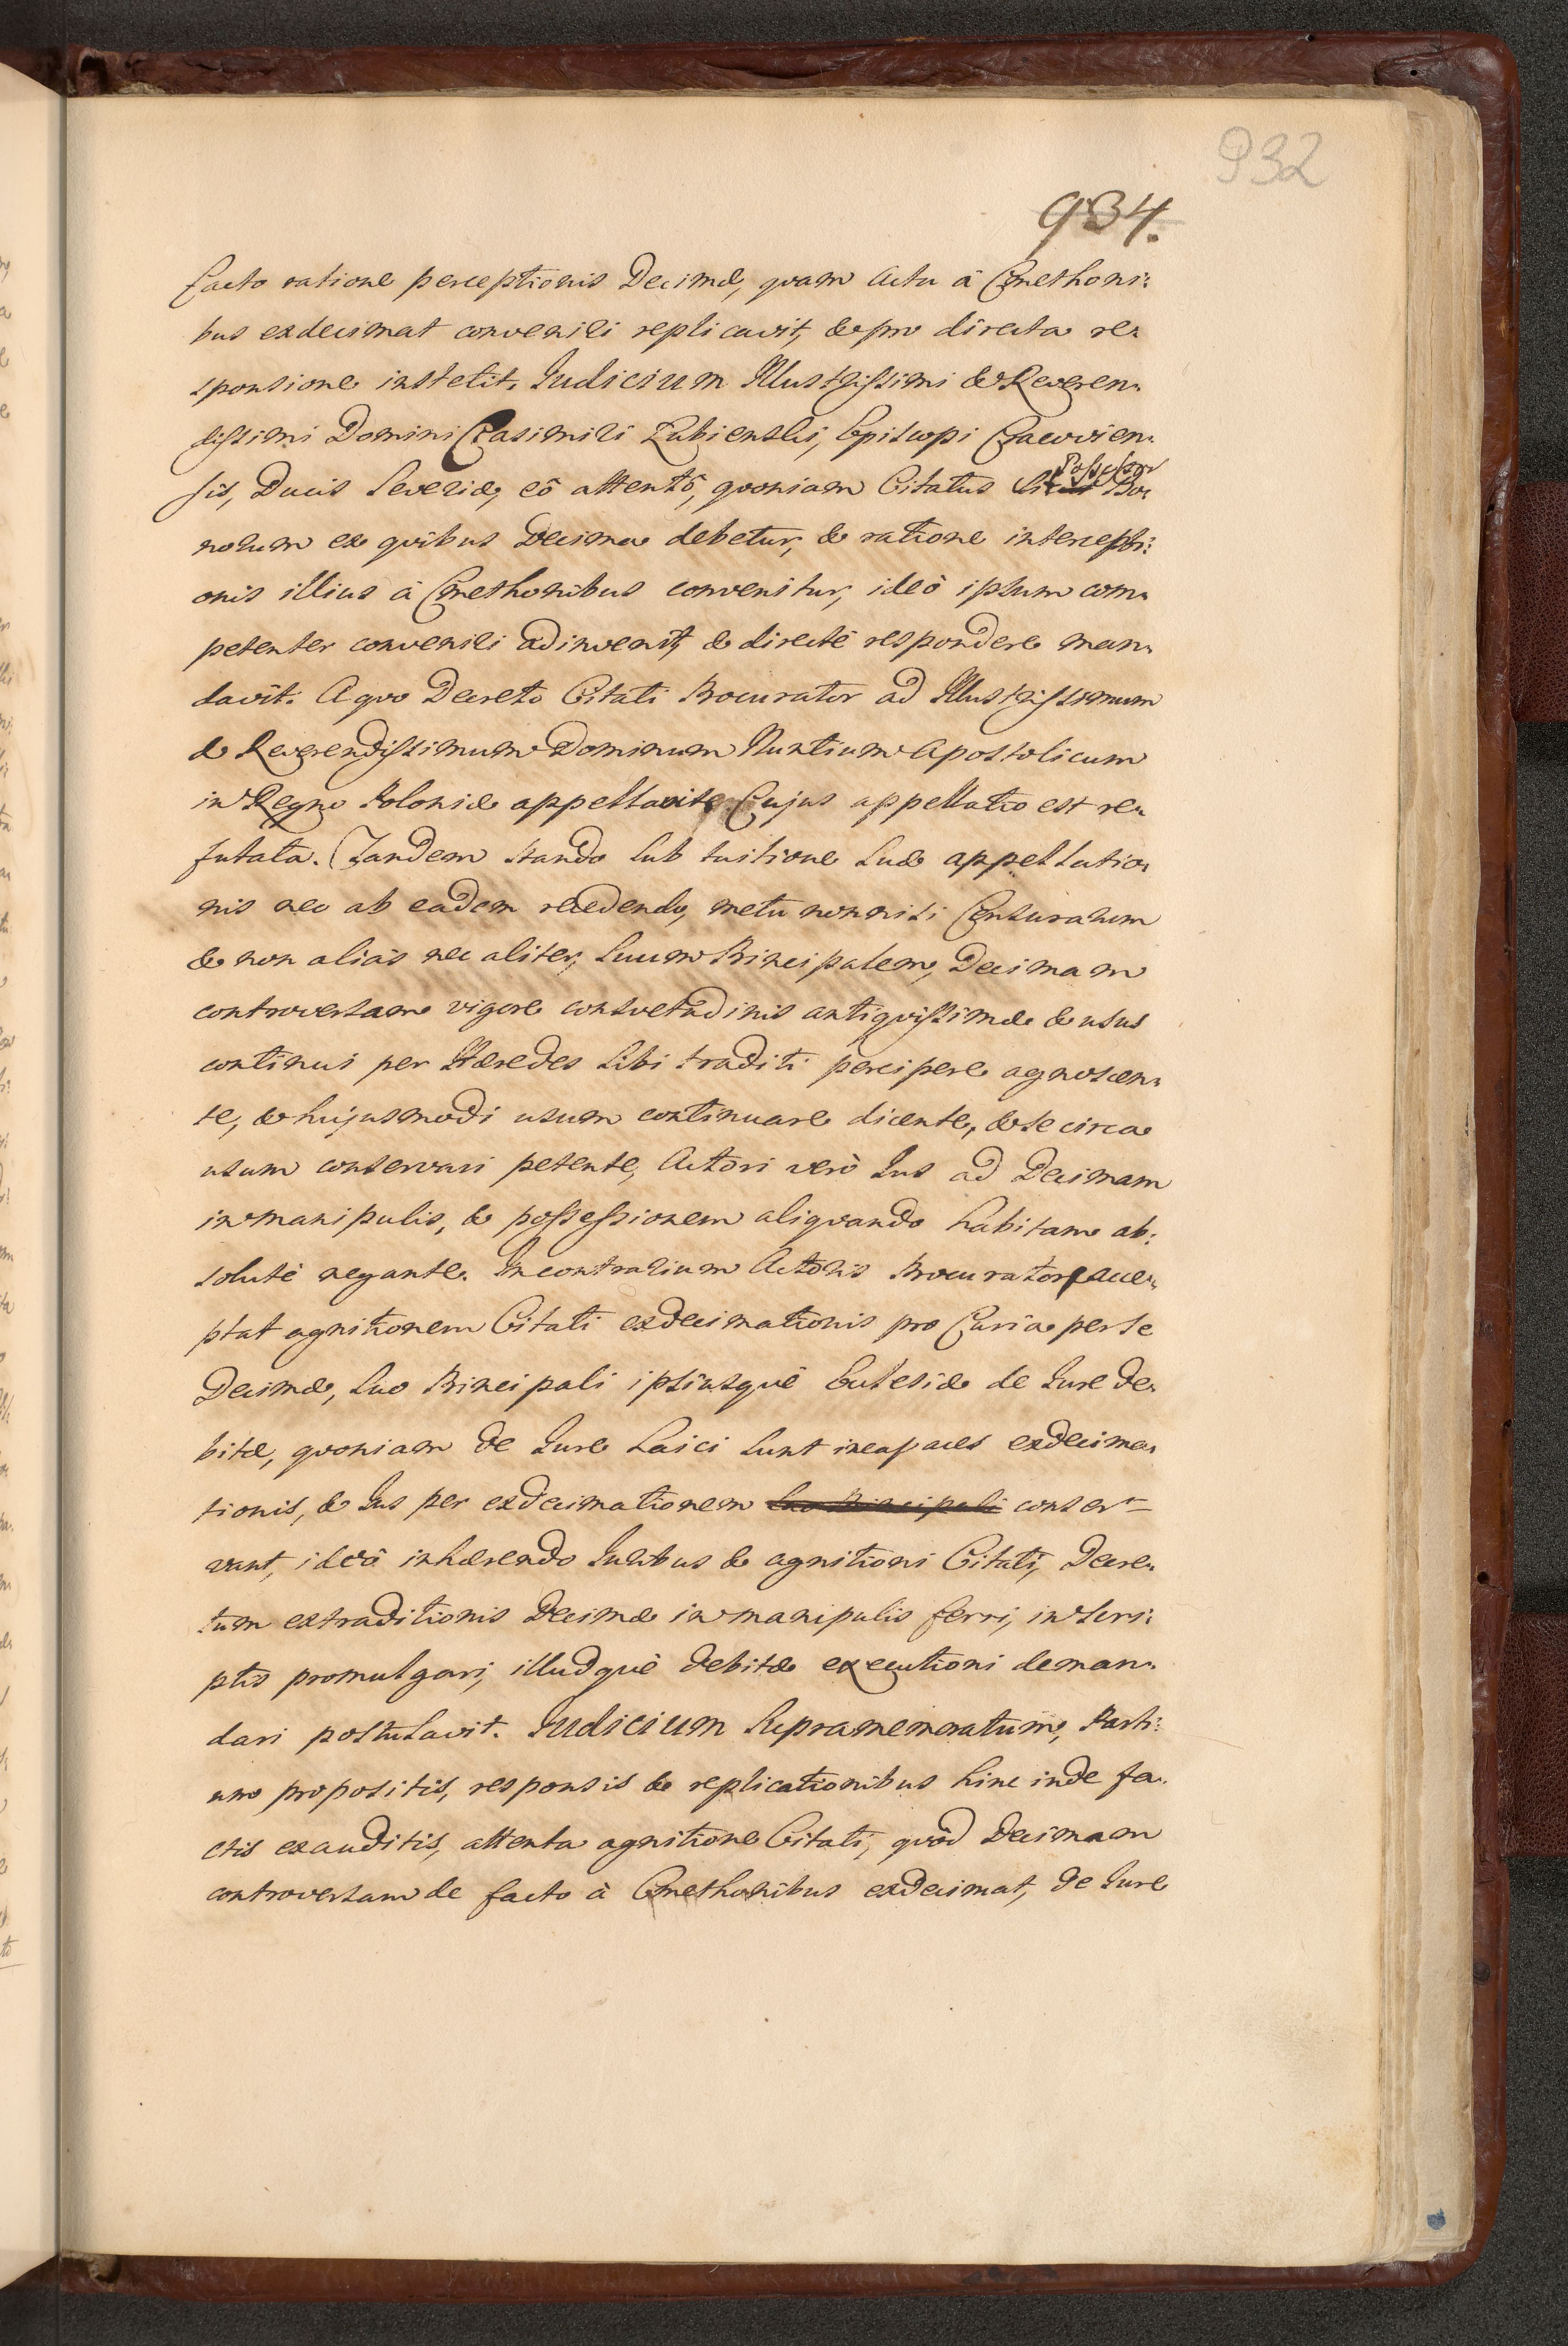 932
934.
facto ratione perceptionis Decimæ, quam actu à Cmethoni:
bus exdecimat conveniri replicavit, & pro directa re-
sponsione institit. Iudicium Illustrissimi & Reveren-
dissimi Domini Casimiri Łubienski, Episcopi Cracovien-
sis, Ducis Severiæ, eô attentô, quoniam Citatus Possessor Bo-
norum ex quibus Decima debetur, & ratione intercepti:
onis illius à Cmethonibus convenitur, ideò ipsum com-
petenter conveniri adinvenit, & directè respondere man-
davit. A quo Decreto Citati Procurator ad Illustrissimum
& Reverendissimum Dominum Nuntium Apostolicum
in Regno Poloniæ appellavit. Cujus appellatio est re-
futata. Tandem stando sub tuitione suæ appellatio-
nis nec ab eadem recedendo, metu nonnisi Censurarum
& non aliàs nec aliter, suum Principalem, Decimam
controversam vigore consvetudinis antiquissimæ & usus
continui per Hæredes sibi traditi percipere agnoscen-
te, & hujusmodi usum continuare dicente, & se circa
usum conservari petente, Actori verò Ius ad Decimam
in manipulis, & possessionem aliquando habitam ab:
solutè negante. In contrarium Actoris Procurator acce-
ptat agnitionem Citati exdecimationis pro Curia per se
Decimæ, suo Principali ipsiusquè Ecclesiæ de Iure de-
bitæ, quoniam de Iure Laici sunt incapaces exdecima-
tionis, & Ius per exdecimationem suo Principali conser-
vant, ideò inhærendo Iuribus & agnitioni Citati, Decre-
tum extraditionis Decimæ in manipulis ferri, in scri:
ptis promulgari, illudquè debitæ executioni deman-
dari postulavit. Iudicium supramemoratum, Parti:
um propositis, responsis & replicationibus hinc inde fa-
ctis exauditis, attenta agnitione Citati, quòd Decimam
controversam de facto à Cmethonibus exdecimat, de Iure